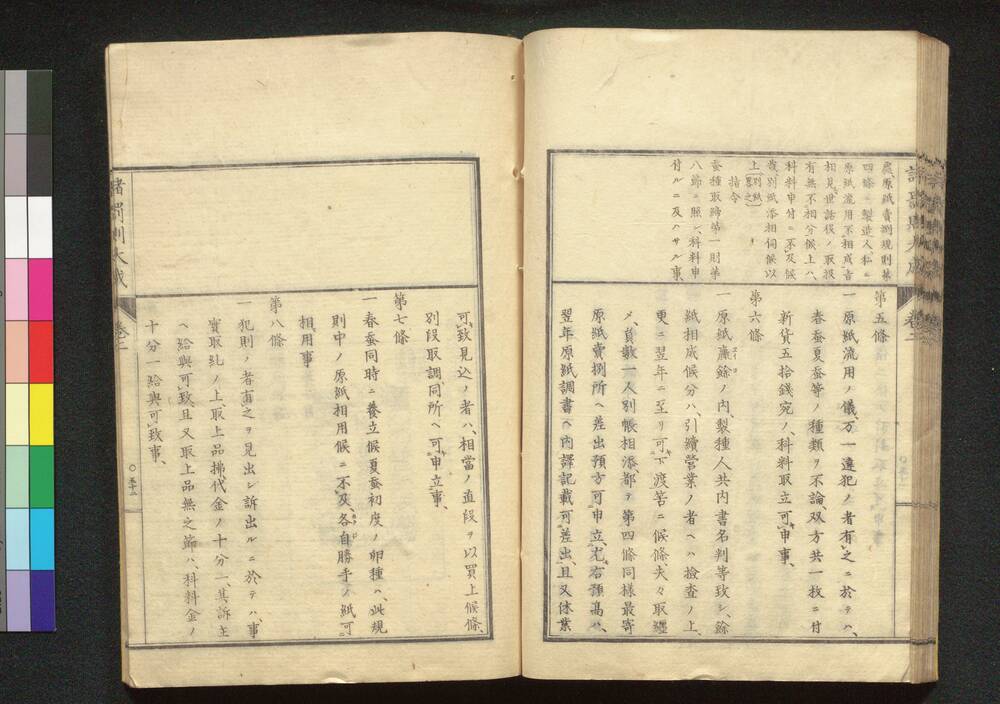 農原紙賣捌規則第
四條ニ製造人私ニ
原紙流用不相成旨
相見世話役ノ取扱
有無不相分候上ハ
科料申付ニ不及候
哉別紙添相伺候以
上(別紙畧之)
指令
蚕種取締第一則第
八節ニ照シ科料申
付ルニ及ハサル事
第五條
一原紙流用ノ儀万一違犯ノ者有之ニ於テハ、
春蚕夏蚕等ノ種類ヲ不論双方共一枚ニ付
新貨五拾錢宛ノ科料取立可申事、
第六條
一原紙廉餘ノ内製種人共内書名判等致シ、餘
紙相成候分ハ、引續営業ノ者ヘハ檢査ノ上、
更ニ翌年ニ至リ可下渡筈ニ候條夫々取纒
メ、員數一人別帳相添、都テ第四條同様最寄
原紙賣捌所ヘ差出預方可申立、尤右預髙ハ、
翌年原紙調書ヘ内譯記載可差出、且又休業
可致見込ノ者ハ、相當ノ直段ヲ以買上候條、
別段取調、同所ヘ可申立事、
第七條
一春蚕同時ニ養立候夏蚕初度ノ卵種ハ、此規
則中ノ原紙相用候ニ不及、各自勝手ノ紙可
相用事
第八條
一犯則ノ者有之ヲ見出シ訴出ルニ於テハ、事
實取糺ノ上、取上品拂代金ノ十分一、其訴主
ヘ給與可致且又取上品無之節ハ、科料金ノ
十分一給與可致事、
諸罰則大成
卷二